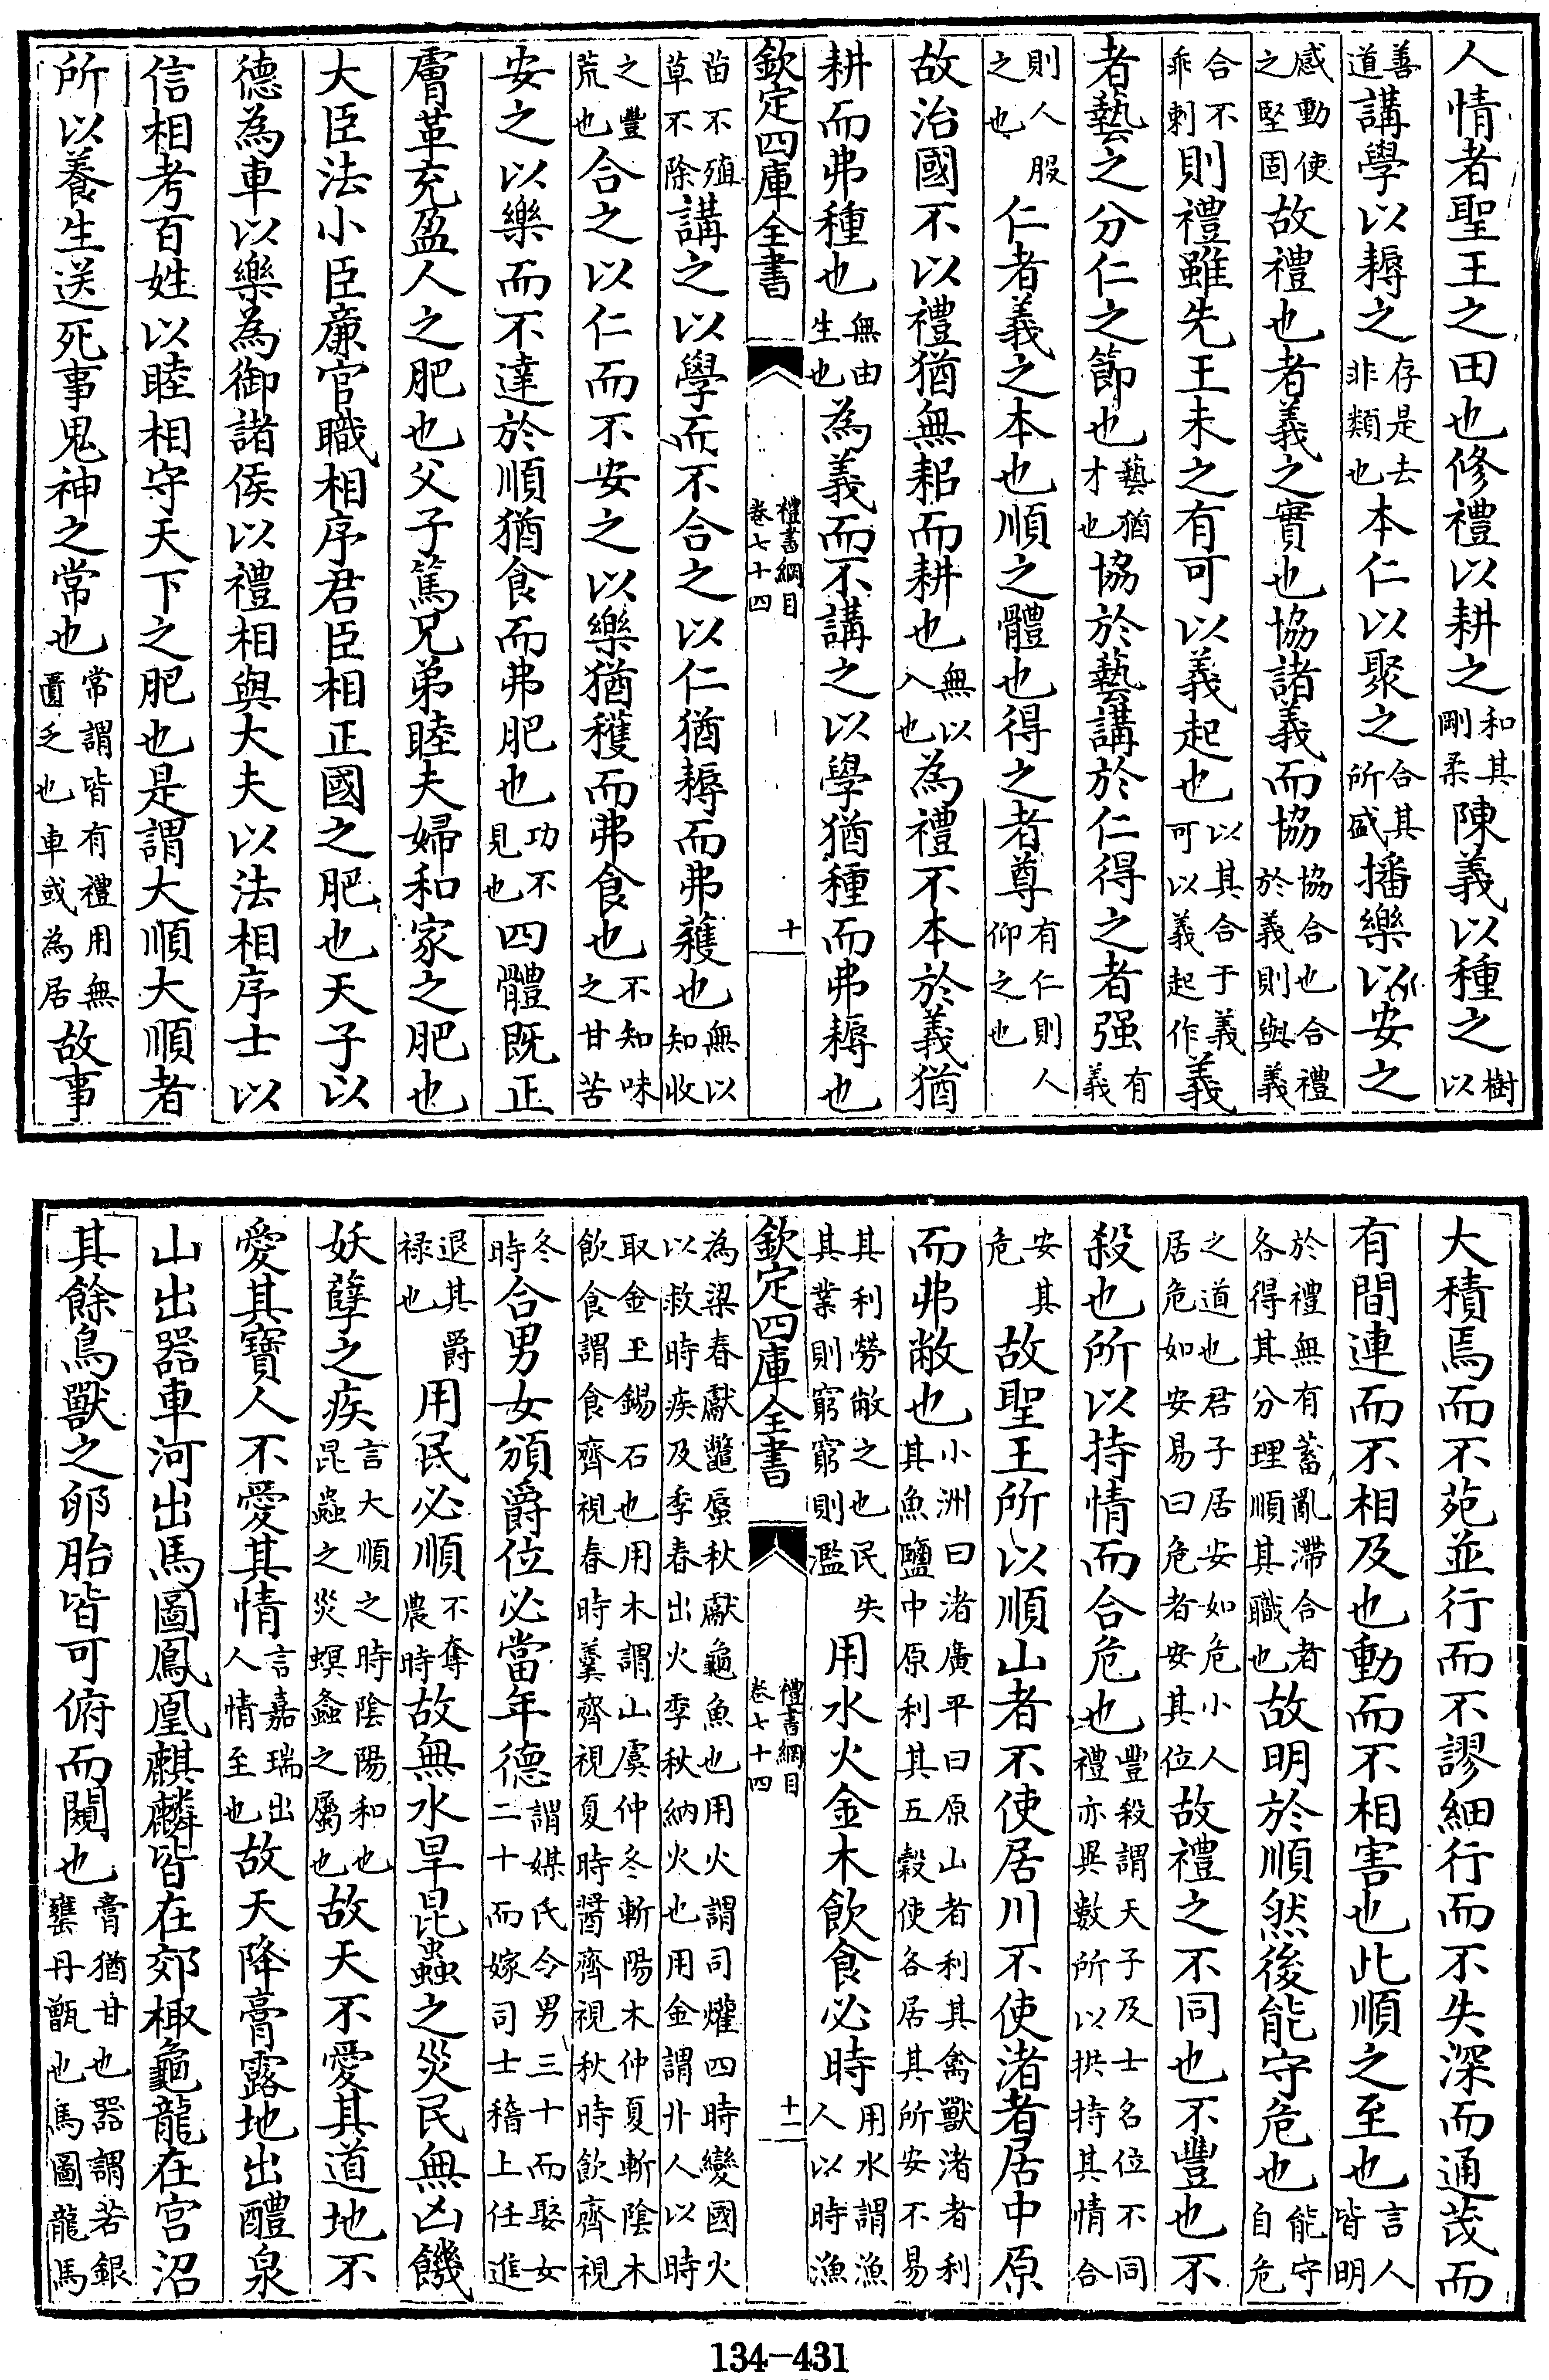 人情者聖王之田也修禮以耕之和其剛柔陳義以種之樹以
善道講學以耨之存是去非類也本仁以聚之合其所盛播樂以安之
感動使之堅固故禮也者義之實也協諸義而協協合也合禮於義則與義
合不乖剌則禮雖先王未之有可以義起也以其合于義可以義起作義
者藝之分仁之節也藝猶才也協於藝講於仁得之者强有義
則人服之也仁者義之本也順之體也得之者尊有仁則人仰之也
故治國不以禮猶無耜而耕也無以入也為禮不本於義猶
耕而弗種也無由生也為義而不講之以學猶種而弗耨也
欽定四庫全書 禮書綱目卷七十四 十
苗不殖草不除講之以學而不合之以仁猶耨而弗穫也無以知收
之豐荒也合之以仁而不安之以樂猶穫而弗食也不知味之甘苦
安之以樂而不達於順猶食而弗肥也功不見也四體既正
膚革充盈人之肥也父子篤兄弟睦夫婦和家之肥也
大臣法小臣廉官職相序君臣相正國之肥也天子以
德為車以樂為御諸侯以禮相與大夫以法相序士以
信相考百姓以睦相守天下之肥也是謂大順大順者
所以養生送死事鬼神之常也常謂皆有禮用無匱乏也車或為居故事
大積焉而不苑並行而不謬細行而不失深而通茂而
有間連而不相及也動而不相害也此順之至也言人皆明
於禮無有蓄亂滯合者各得其分理順其職也故明於順然後能守危也能守自危
之道也君子居安如危小人居危如安易曰危者安其位故禮之不同也不豐也不
殺也所以持情而合危也豐殺謂天子及士名位不同禮亦異數所以拱持其情合
安其危故聖王所以順山者不使居川不使渚者居中原
而弗敝也小洲曰渚廣平曰原山者利其禽獸渚者利其魚鹽中原利其五穀使各居其所安不易
其利勞敝之也民失其業則窮窮則濫用水火金木飲食必時用水謂漁人以時漁
欽定四庫全書 禮書綱目卷七十四 十一
為梁春獻鼈蜃秋獻龜魚也用火謂司爟四時變國火以救時疾及季春出火季秋納火也用金謂丱人以時
取金玉錫石也用木謂山虞仲冬斬陽木仲夏斬陰木飲食謂食齊視春時羹齊視夏時醬齊視秋時飲齊視
冬時合男女頒爵位必當年德謂媒氏令男三十而娶女二十而嫁司士稽上任進
退其爵祿也用民必順不奪農時故無水旱昆蟲之災民無凶饑
妖孽之疾言大順之時陰陽和也昆蟲之災螟螽之屬也故天不愛其道地不
愛其寶人不愛其情言嘉瑞出人情至也故天降膏露地出醴泉
山出器車河出馬圖鳳凰麒麟皆在郊棷龜龍在宮沼
其餘鳥獸之卵胎皆可俯而闚也膏猶甘也器謂若銀甕丹甑也馬圖龍馬
134-431